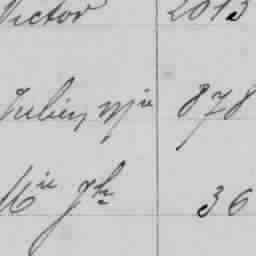 Victor 2013
Julien, M^ie 878
M^ie J^h 36